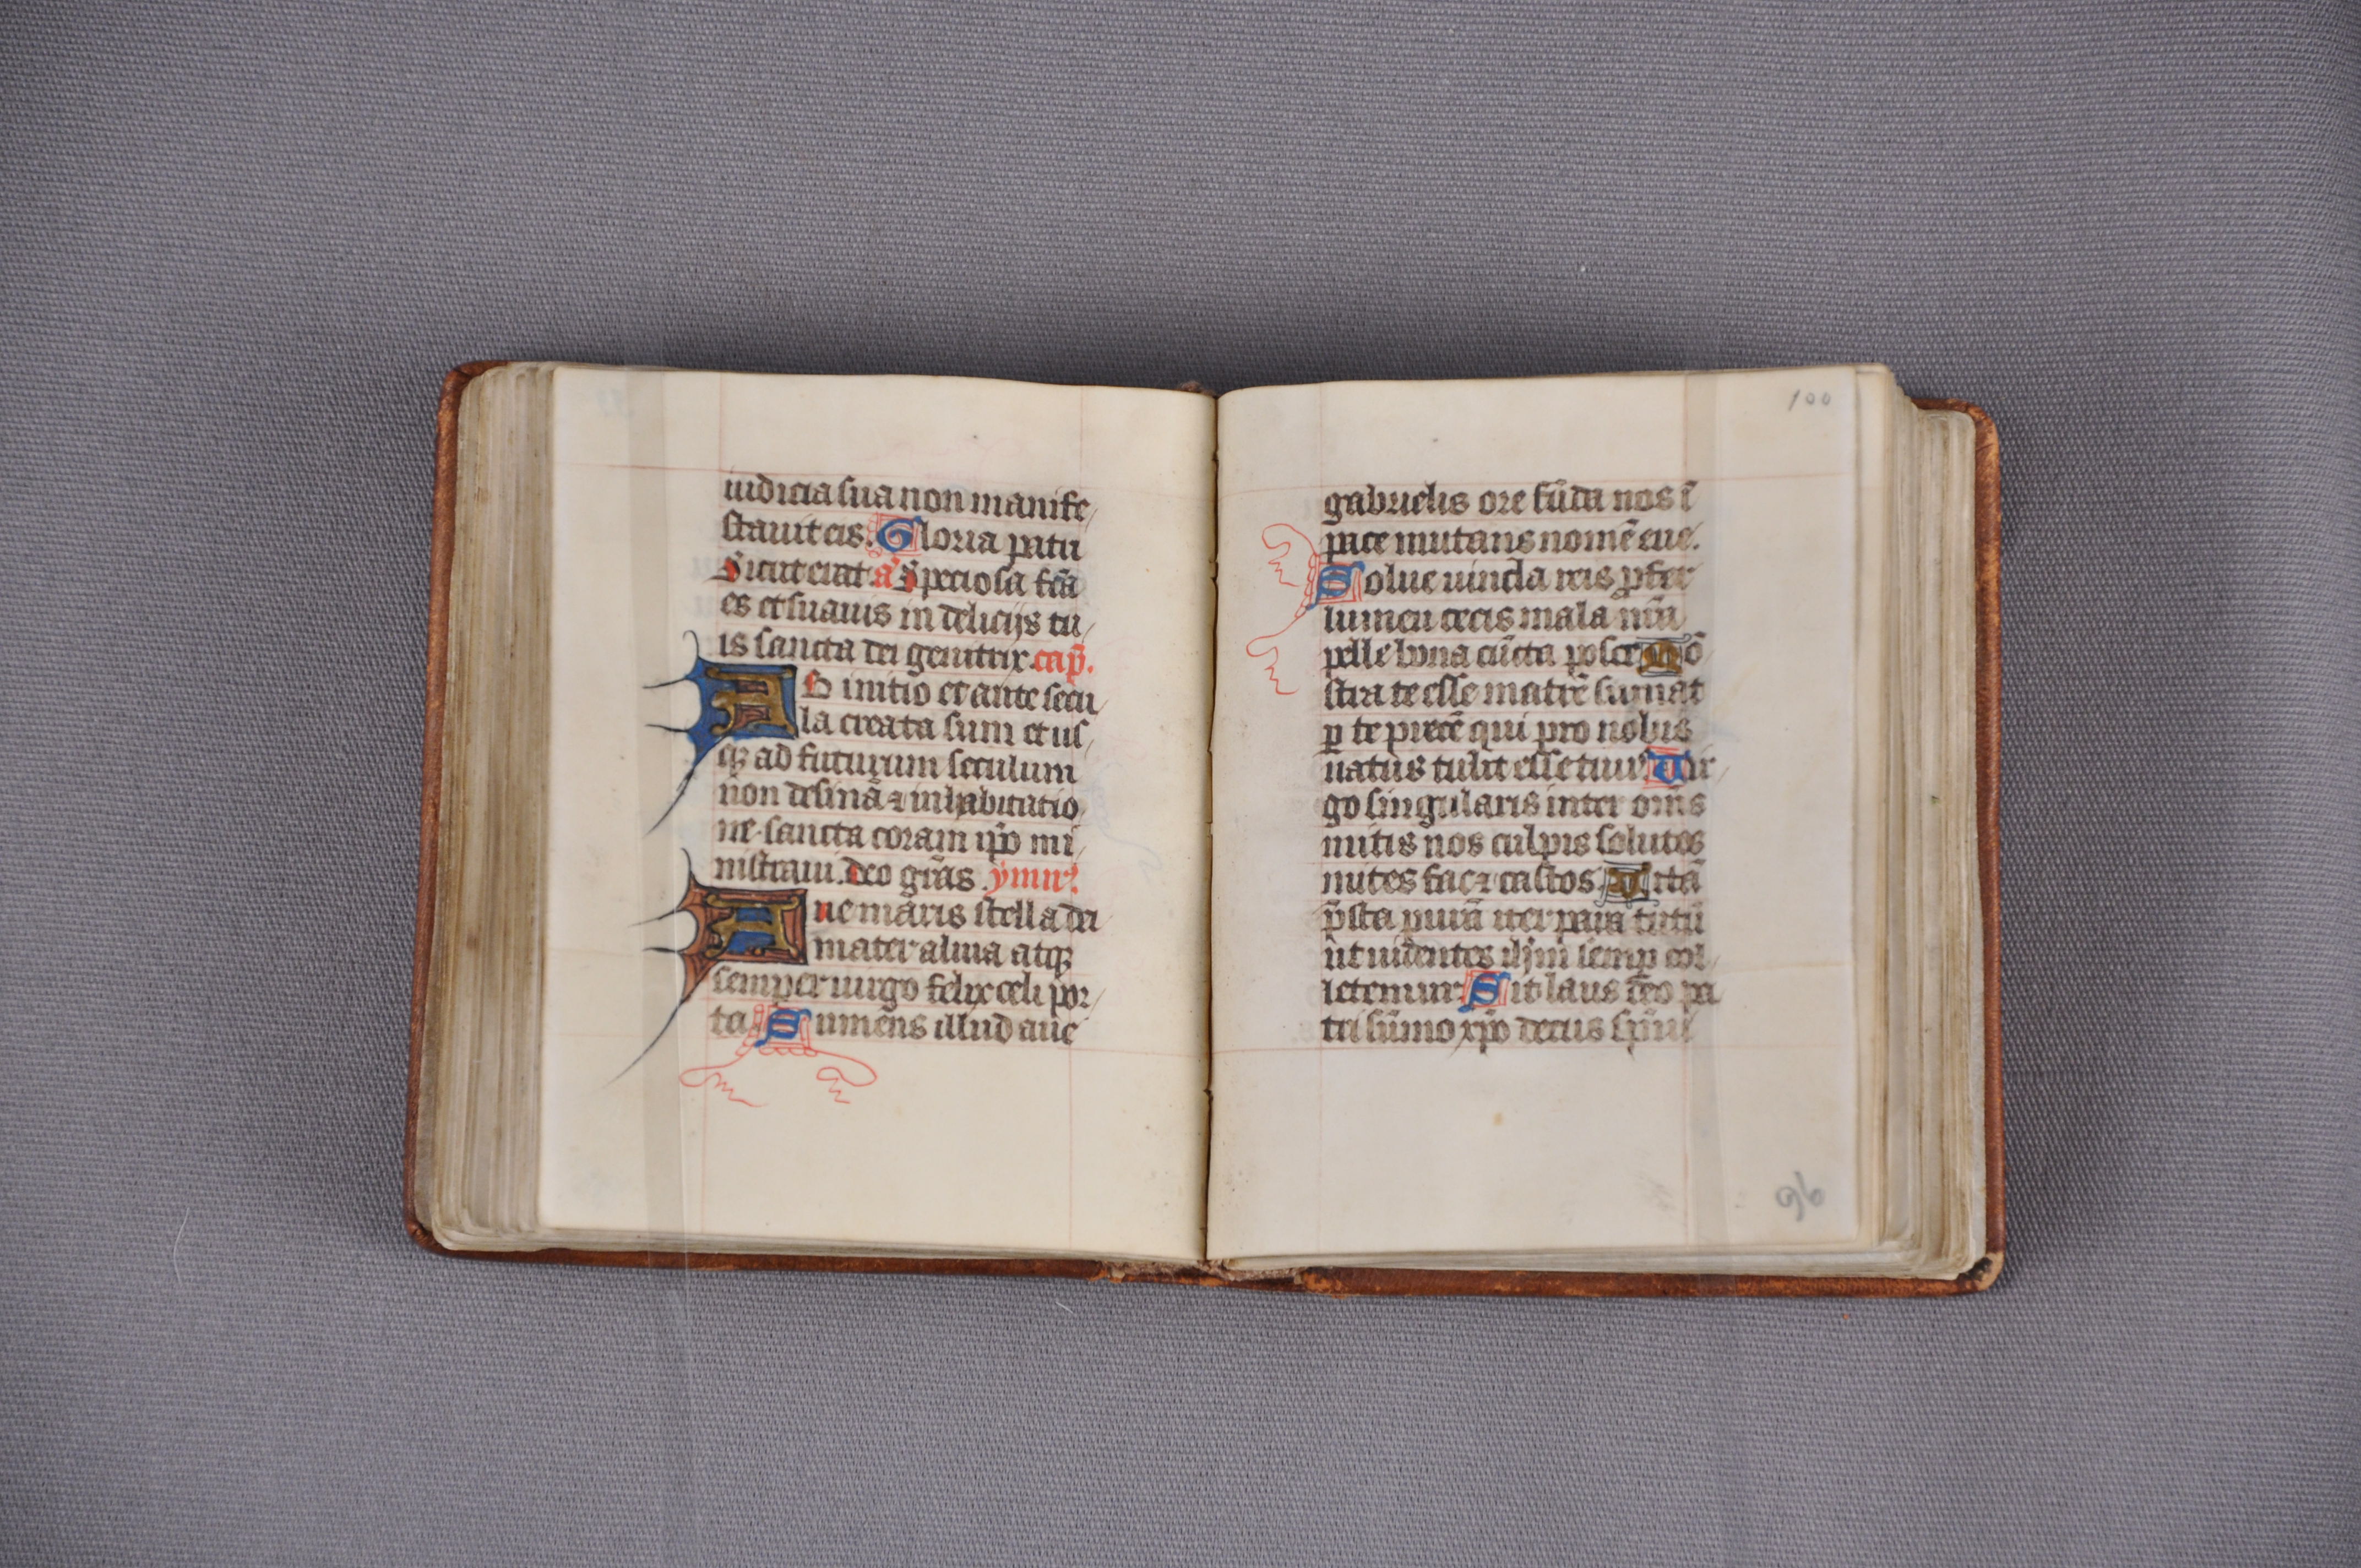 iudicia sua non manife
stauit eis. Gloria patri
Sicut erat a᷑ Speciosa fcā
es et suauis in delicijs tu
is sancta dei genitrix. cap̄.
Ab initio et ante secu
la creata sum et us
qꝫ ad futurum seculum
non desinā ⁊ in habitatio
ne sancta coram ip̄o mi
nistraui. Deo grās. ymn᷒
Aue maris stella dei
mater alma atqꝫ
semper uirgo felix celi por
ta. Sumens illud aue
100
gabrielis ore fūda nos ī
pace mutans nomē eue.
Solue uincla reis ꝓfer
lumen cecis mala nr̄a
pelle bona cūcta posce Mō
stra te esse matrē sumat
ꝑ te precē qui pro nobis
natus tulit esse tuus Uir
go singularis inter om̄s
mitis nos culpis solutos
mites fac ⁊ castos. Uitā
p̄sta purā iter para tutū
ut uidentes ih̄m semꝑ col
letemur Sit laus deo pa
tri sūmo xp̄o decus sp̄ui
96